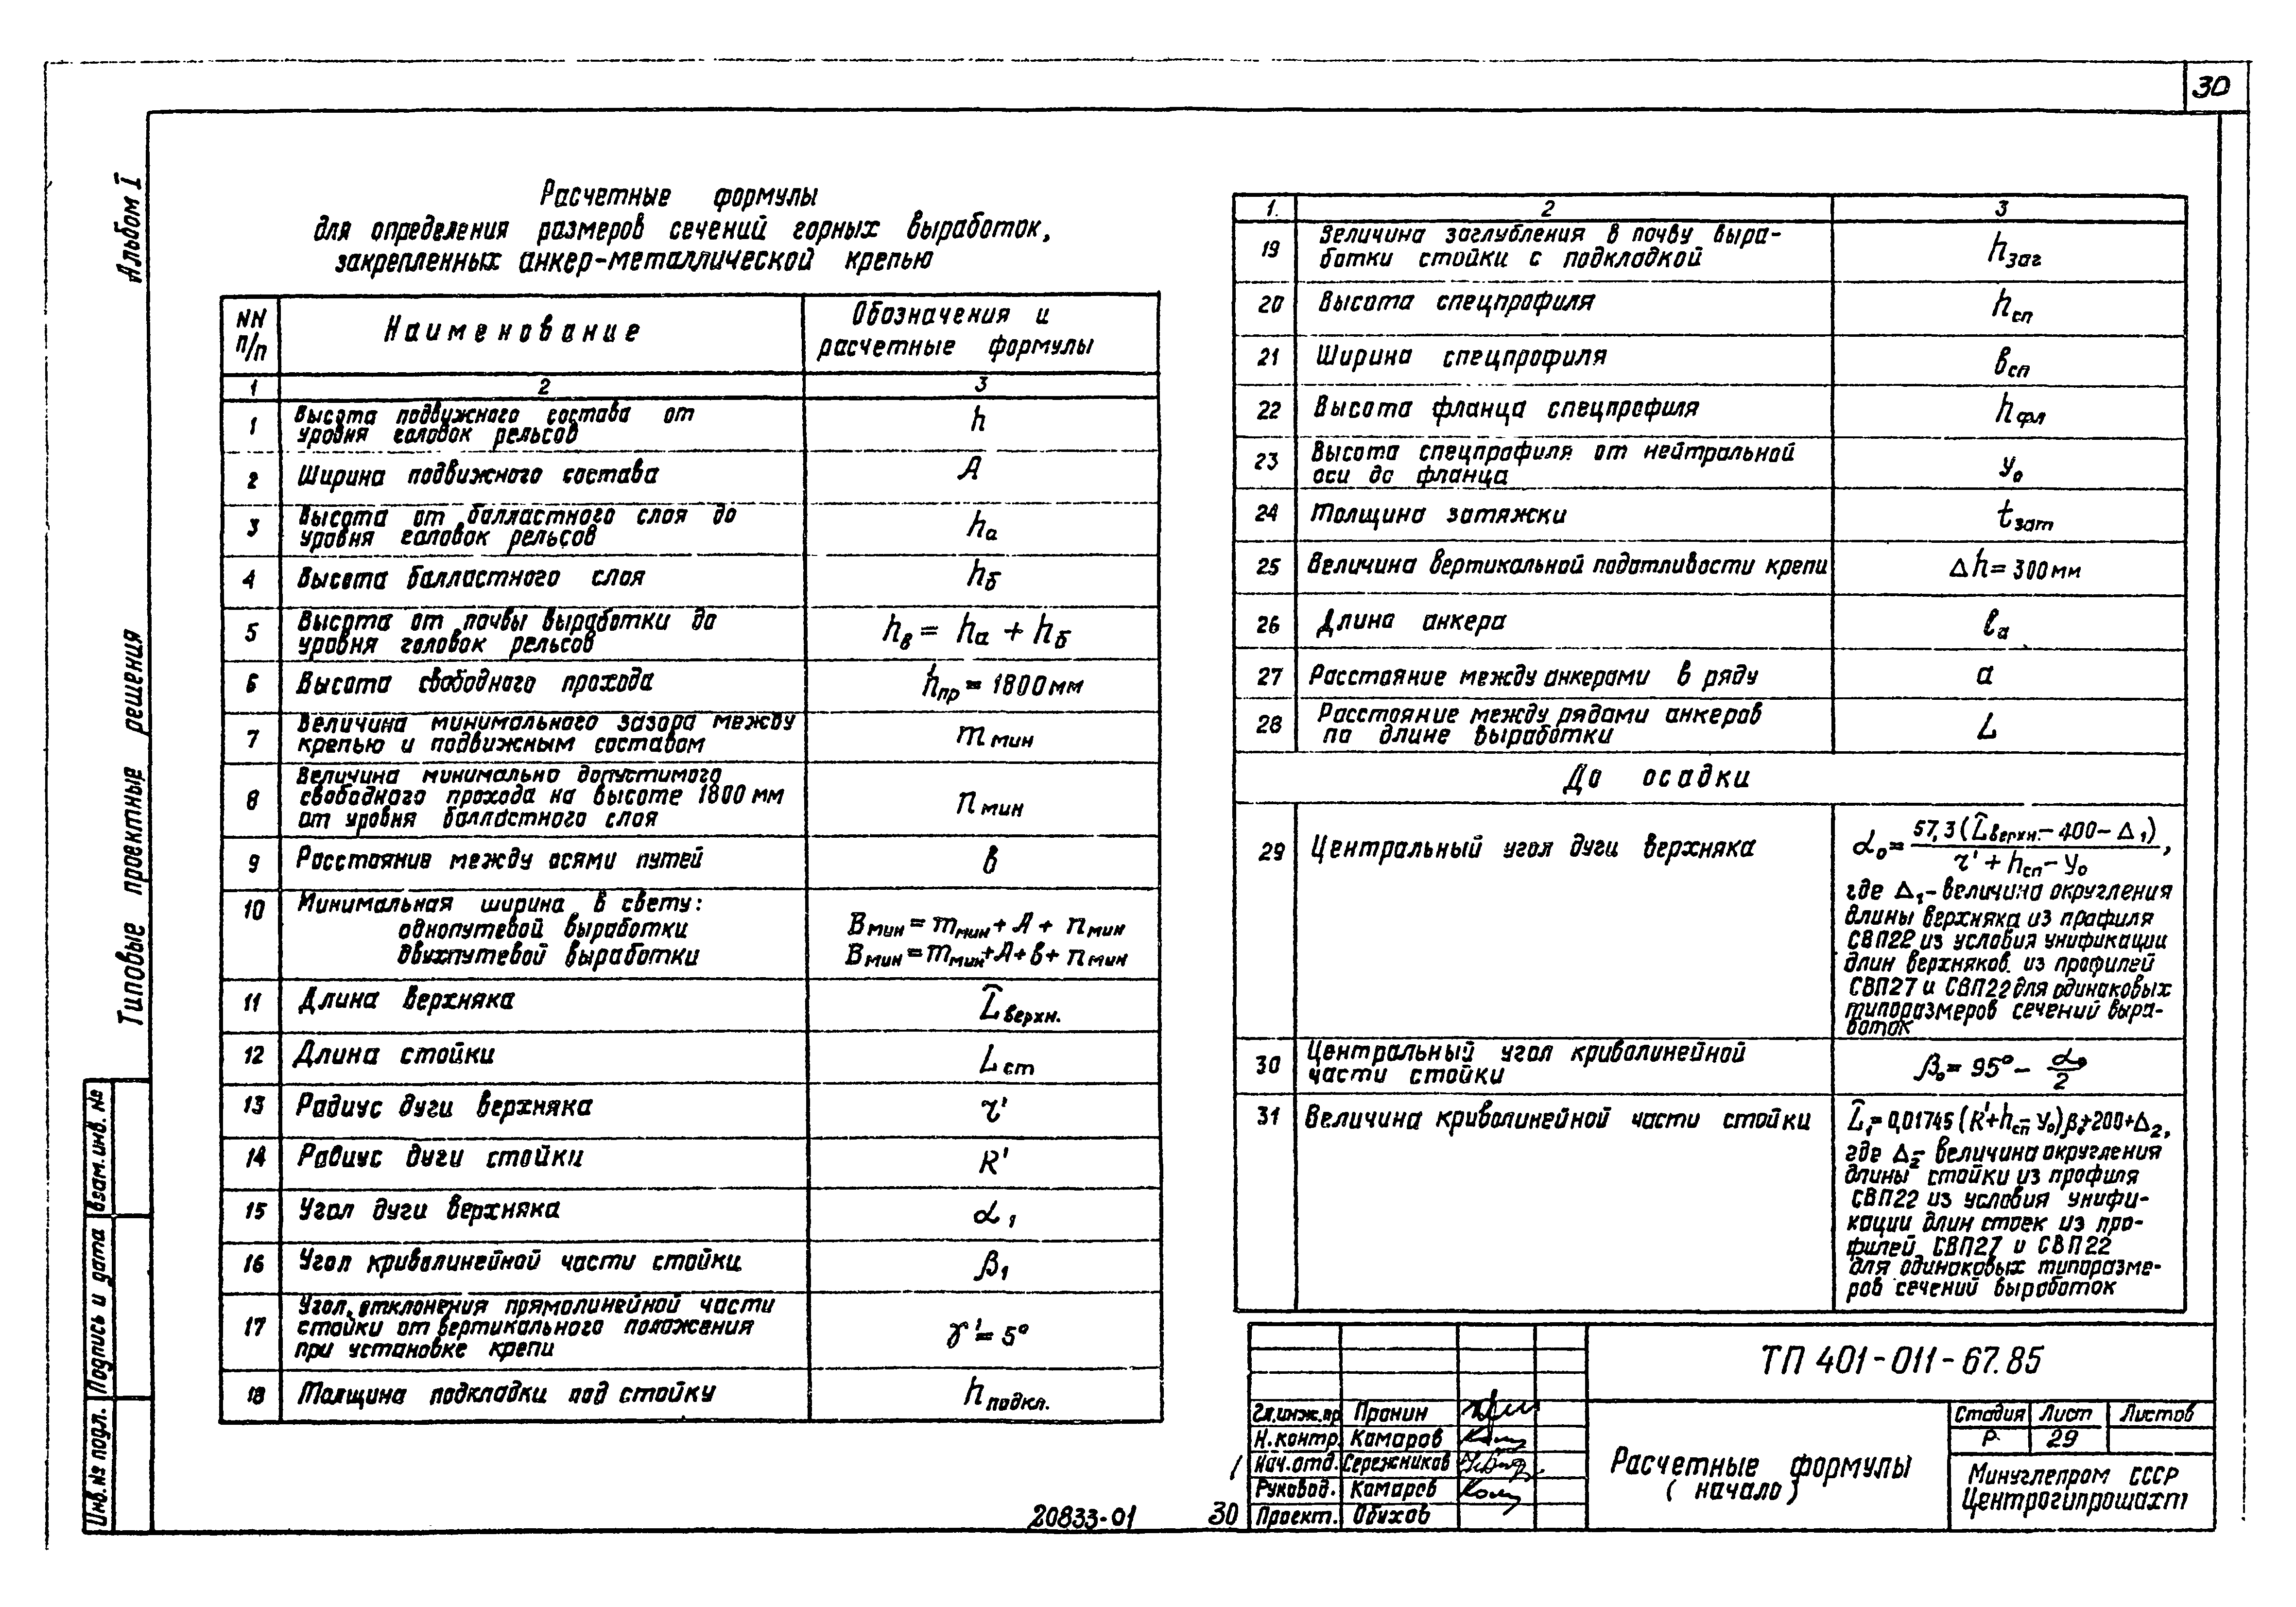 30
Альбом I
Типовые проектные решения
Взам. инв. №
Подпись и дата
Инв. № подл.
Расчетные формулы
для определения размеров сечений горных выработок,
закрепленных анкер-металлической крепью
NN п/п | Наименование | Обозначения и расчетные формулы
1 | 2 | 3
1 | Высота подвижного состава от
уровня головок рельсов | h
2 | Ширина подвижного состава | А
3 | Высота от балластного слоя до
уровня головок рельсов | hа
4 | Высота балластного слоя | hб
5 | Высота от почвы выработки до
уровня головок рельсов | hв = hа + hб
6 | Высота свободного прохода | hпр = 1800 мм
7 | Величина минимального зазора между
крепью и подвижным составом | mмин
8 | Величина минимально допустимого
свободного прохода на высоте 1800 мм
от уровня балластного слоя | nмин
9 | Расстояние между осями путей | в
10 | Минимальная ширина в свету:
однопутевой выработки | Вмин = mмин + А + nмин
двухпутевой выработки | Вмин = mмин + А + в + nмин
11 | Длина верхняка | L̂верхн.
12 | Длина стойки | Lст
13 | Радиус дуги верхняка | r'
14 | Радиус дуги стойки | R'
15 | Угол дуги верхняка | α1
16 | Угол криволинейной части стойки | β1
17 | Угол отклонения прямолинейной части
стойки от вертикального положения
при установке крепи | γ' = 5°
18 | Толщина подкладки под стойку | hподкл.
1. | 2 | 3
19 | Величина заглубления в почву выра-
ботки стойки с подкладкой | hзаг
20 | Высота спецпрофиля | hсп
21 | Ширина спецпрофиля | всп
22 | Высота фланца спецпрофиля | hфл
23 | Высота спецпрофиля от нейтральной
оси до фланца | yо
24 | Толщина затяжки | tзат
25 | Величина вертикальной податливости крепи | Δh = 300 мм
26 | Длина анкера | ℓа
27 | Расстояние между анкерами в ряду | а
28 | Расстояние между рядами анкеров
по длине выработки | L
До осадки
29 | Центральный угол дуги верхняка | αо = 57,3 (L̂верхн. − 400 − Δ1) / r' + hсп − yо ,
где Δ1 - величина округления
длины верхняка из профиля
СВП22 из условия унификации
длин верхняков из профилей
СВП27 и СВП22 для одинаковых
типоразмеров сечений выра-
боток
30 | Центральный угол криволинейной
части стойки | βо = 95° − αо/2
31 | Величина криволинейной части стойки | L̂1 = 0,01745 (R' + hсп − yо) βо + 200 + Δ2,
где Δ2 - величина округления
длины стойки из профиля
СВП22 из условия унифи-
кации длин стоек из про-
филей СВП27 и СВП22
для одинаковых типоразме-
ров сечений выработок
ТП 401-011-67.85
Гл.инж.пр Пронин
Н.контр. Комаров
Нач.отд. Сережников
Руковод. Комаров
Проект. Обухов
Расчетные формулы
(начало)
Стадия Лист Листов
Р 29
Минуглепром СССР
Центрогипрошахт
20833-01
30